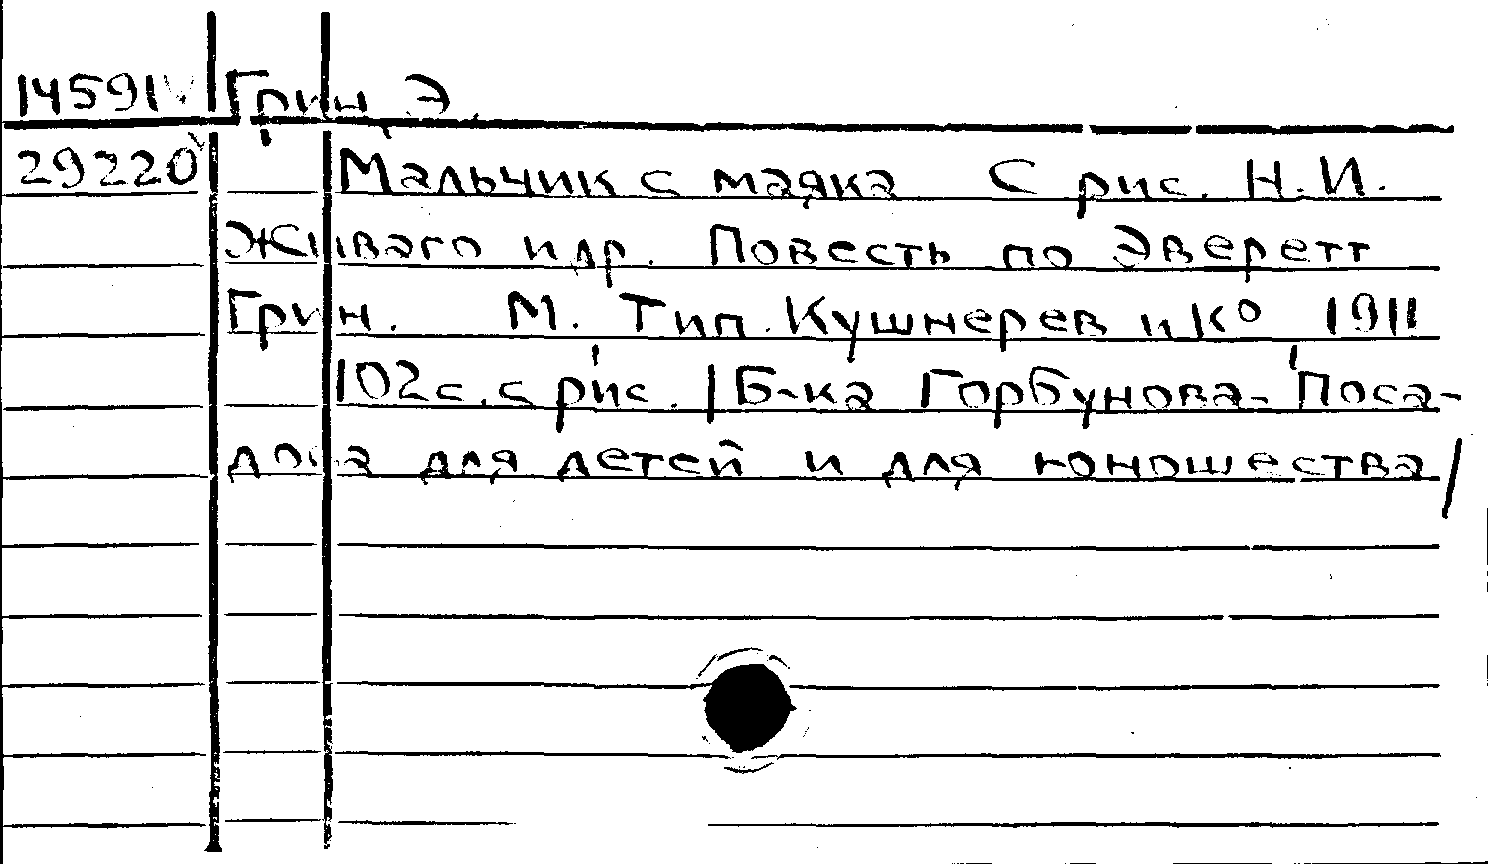 14591 Грин, Э.
29220 Мальчик с маяка С рис. Н.И.
Живаго и др. Повесть по Эверетт
Грин. М. Тип. Кушнерев и К⁰ 1911
102с. с рис. /Б-ка Горбунова-Поса-
дова для детей и для юношества/